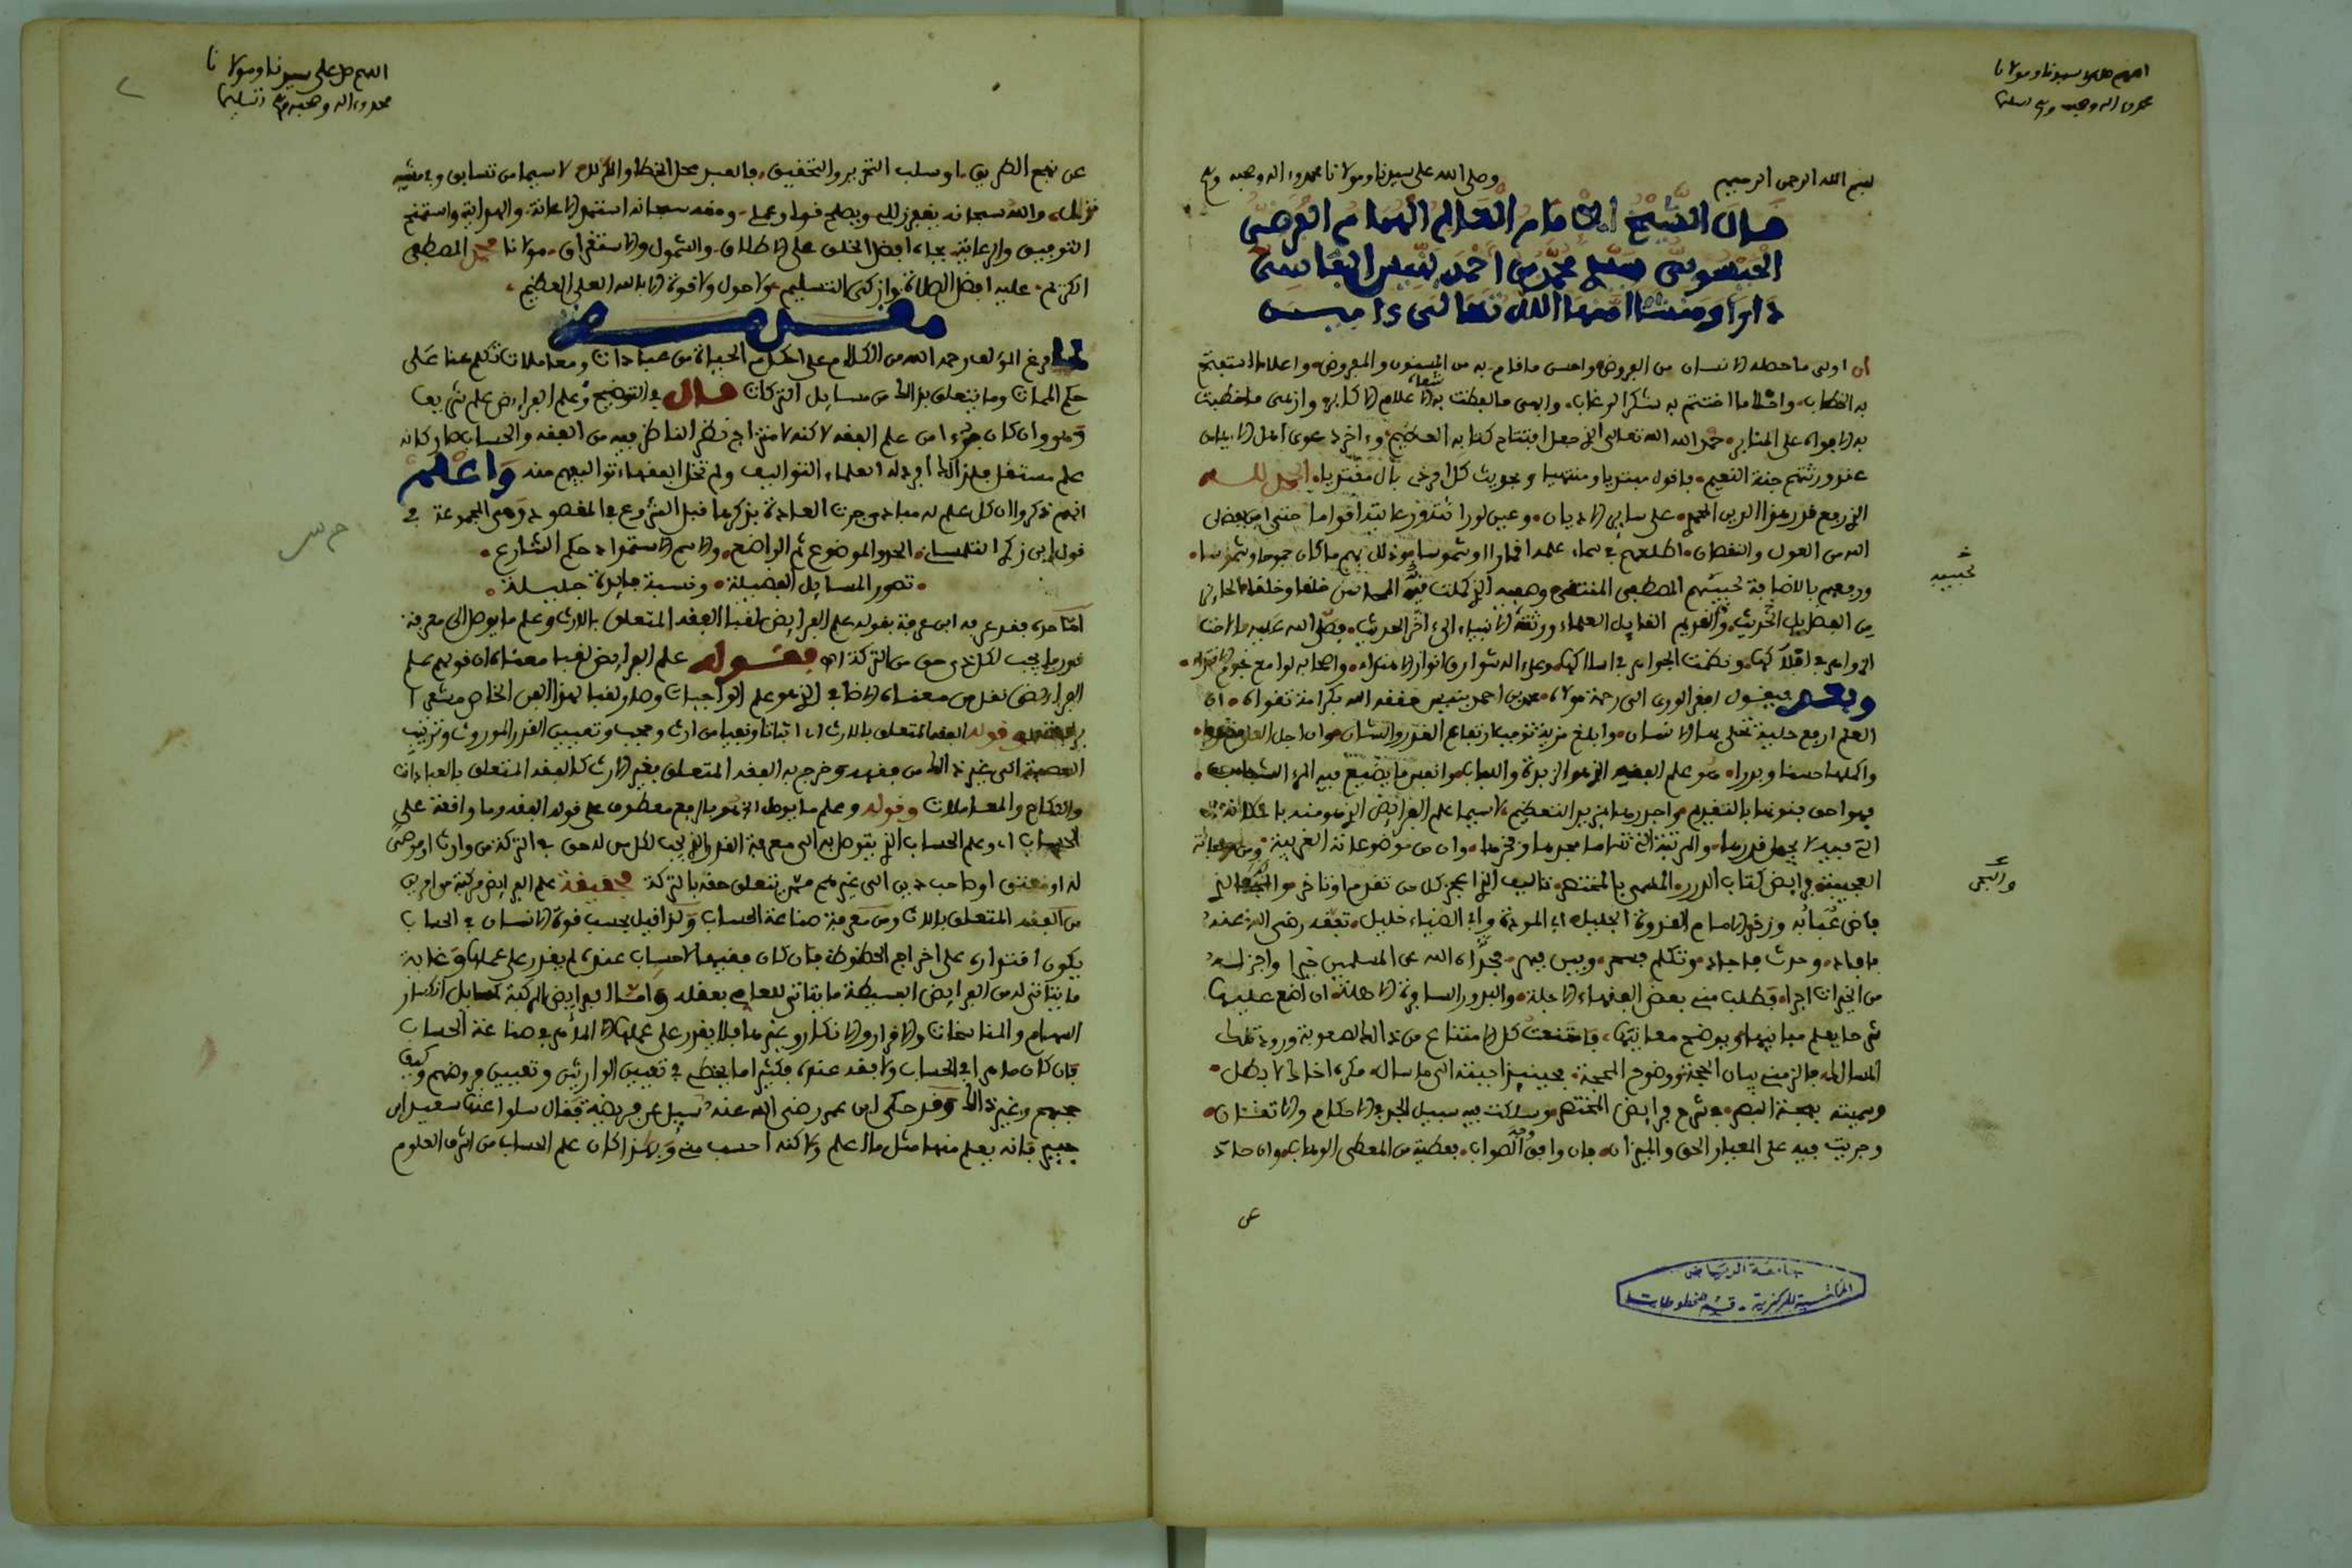 اللهم صل على سيدنا ومولانا
محمد واله وصحبه وسلم تسليما
بسم الله الرحمن الرحيم وصلى الله على سيدنا ومولانا محمد واله وصحبه وسلم
قال الشيخ الامام العالم الهمام الفرضي
الحيسوبي سيدي محمد بن احمد بنيس الفاسي
دارا ومنشا امنها الله تعالى ءامين
ان اولى ما حصله الانسان من الفروض واحسن ما قام به من المسنون والمفروض واعلا ما استفتح
به الخطاب واحلا ما اختتم به شكر الرغاب وابهى ما لفظت به شفاه الاعلام الاكابر وازهى ما خطبت
به الافواه على المنابر حمد الله الذي جعل افتتاح كتابه الحكيم وءاخر دعوى اهل الايمان
عند ورثتهم جنة النعيم فاقول مبتديا ومنتهيا وبحديث كل امر ذي بال مقتديا الحمد لله
الذي رفع قدر هذا الدين المحمدي على ساير الاديان
الله من العول والنقصان اطلعهم في سماء علمه اقمارا وشموسا
ورفعهم بالاضافة لحبيبهم المصطفى المقتفى وصفيه الذي كملت فيه المحاسن خلقا وخلقا
لحبيبه
من الفضل في الحديث والقديم القايل العلماء ورثة الانبياء الى ءاخر الحديث فصلى الله عليه ما اضاءت
الدراري في افلاكها ونظمت الجواهر في اسلاكها وعلى اله شوارق انوار الاهتداء واصحابه لوامع نجوم الاقتداء
وبعد فيقول افقر الورى الى رحمة مولاه محمد بن احمد بنيس حققه الله بكرامة تقواه ان
العلم ارفع حلية تحلى بها الانسان وابلغ مزية توجب ارتفاع القدر والشان وان اجل العلوم
واكملها حسنا وبدرا هو علم الفقه الذي هو الزبدة واللباب وانفس ما يضيع فيه المرء الشباب
فهو احق بنوعها بالتقديم واجدرها بمزيد التعظيم لاسيما علم الفرايض الذي هو منه بالمكانة
التي لا يجهل قدرها والمرتبة التي تناها مجدها وفخرها وان من موضوعاته الغريبة ومن مصنفاته
العجيبة فرايض كتاب الدرر المسمى بالمختصر تاليف الذي اعجز كل من تقدم او تاخر والبحر الذي
فاض عبابه وزخر الامام القدوة الجليل ابي المودة وابي الضياء خليل تغمده رضي الله عنه
فافاد وحدث فاجاد وتكلم فسحر وبين فبهر فجزاه الله عن المسلمين خيرا واجزل له
من الخيرات اجرا وطلب مني بعض الفقهاء الاجلة والبدور السافرة الاهلة ان اضع عليها
شرحا يعلم مبانيها ويوضح معانيها فامتنعت كل الامتناع من ذالك لصعوبة ورود تلك
المسالك فالزمني بيان الحجة ووضوح المحجة فحينئذ اجبته الى ما ساله مكره اخاك لا بطل
وسميته بهجة البصر في شرح فرايض المختصر وسلكت فيه سبيل الجد في الاحكام والاتقان
وجريت فيه على المعيار الحق والميزان فان وافق وجه الصواب فعطية من المعطي الوهاب وان حاد
عن
جامعة الرياض
المكتبة المركزية - قسم المخطوطات
اللهم صل على سيدنا ومولانا
محمد واله وصحبه وسلم تسليما
عن نهج الطريق او سلب التحرير والتحقيق فالعبد محل الخطا والزلل لاسيما من تسابق
والله سبحانه يغفر الزلل ويصلح قولا وعملا ومنه سبحانه استمد الاعانة والهداية واستمنح
التوفيق والرعاية بجاه افضل الخلق على الاطلاق والشمول والاستغراق مولانا محمد المصطفى
الكريم عليه افضل الصلاة وازكى التسليم ولا حول ولا قوة الا بالله العلي العظيم
مقدمة
لما فرغ المؤلف رحمه الله من الكلام على احكام الحياة من عبادات ومعاملات تكلم هنا على
حكم الممات وما يتعلق بذالك من مسايل التركات قال في التوضيح وعلم الفرايض علم شريف
وهو وان كان جزءا من علم الفقه لاكنه لامتزاج نظر الناظر فيه من الفقه والحساب صار كانه
علم مستقل فلذالك افردت له العلماء التواليف ولم تخل الفقهاء تواليفهم منه واعلم
انهم ذكروا ان كل علم له مباد وجرت العادة بذكرها قبل الشروع في المقصود وهي المجموعة في
قول ابن زكري التلمساني الحد والموضوع ثم الواضع والاسم الاستمداد حكم الشارع
تصور المسايل الفضيلة ونسبة فايدة جليلة
اما حده فقد عرفه ابن عرفة بقوله علم الفرايض لقبا الفقه المتعلق بالارث وعلم ما يوصل الى معرفة
قدر ما يجب لكل ذي حق من التركة اه فقوله علم الفرايض لقبا معناه ان قولهم علم
الفرايض نقل من معناه الاضافي الذي هو علم الواجبات وصار لقبا لهذا الفن الخاص
وقوله الفقه المتعلق بالارث اي اثباتا ونفيا من ارث وحجب وتعيين القدر الموروث وترتيب
العصبة الى غير ذالك من فقهه وخرج به الفقه المتعلق بغير الارث كالفقه المتعلق بالعبادات
والنكاح والمعاملات وقوله وعلم ما يوصل الخ هو بالرفع معطوف على قوله الفقه وما واقعة على
الحساب اي وعلم الحساب الذي يتوصل به الى معرفة القدر الذي يجب لكل من له حق في التركة من وارث او موصى
له او معتق او صاحب دين الى غيرهم ممن يتعلق حقه بالتركة فحقيقة علم الفرايض مركبة من امرين
من الفقه المتعلق بالارث ومن معرفة صناعة الحساب ولذا قيل بحسب قوة الانسان في الحساب
يكون اقتداره على اخراج الحظوظ فان كان فقيها لا حساب عنده لم يقدر على عملها وغاية
ما يتاتى له من الفرايض البسيطة ما يتاتى للعامي بعقله واما الفرايض المركبة كمسايل انكسار
السهام والمناسخات والاقرار والانكار وغيرها فلا يقدر على عملها الا الماهر في صناعة الحساب
فان كان ماهرا في الحساب ولا فقه عنده فكثيرا ما يخطئ في تعيين الوارثين وتعيين فروضهم وكيف
حجبهم وغير ذالك وقد حكى ابن عمر رضي الله عنه سئل عن فريضة فقال سلوا عنها سعيد ابن
جبير فانه يعلم منها مثل ما اعلم ولاكنه احسب مني ولهذا كان علم الحساب من اشرف العلوم